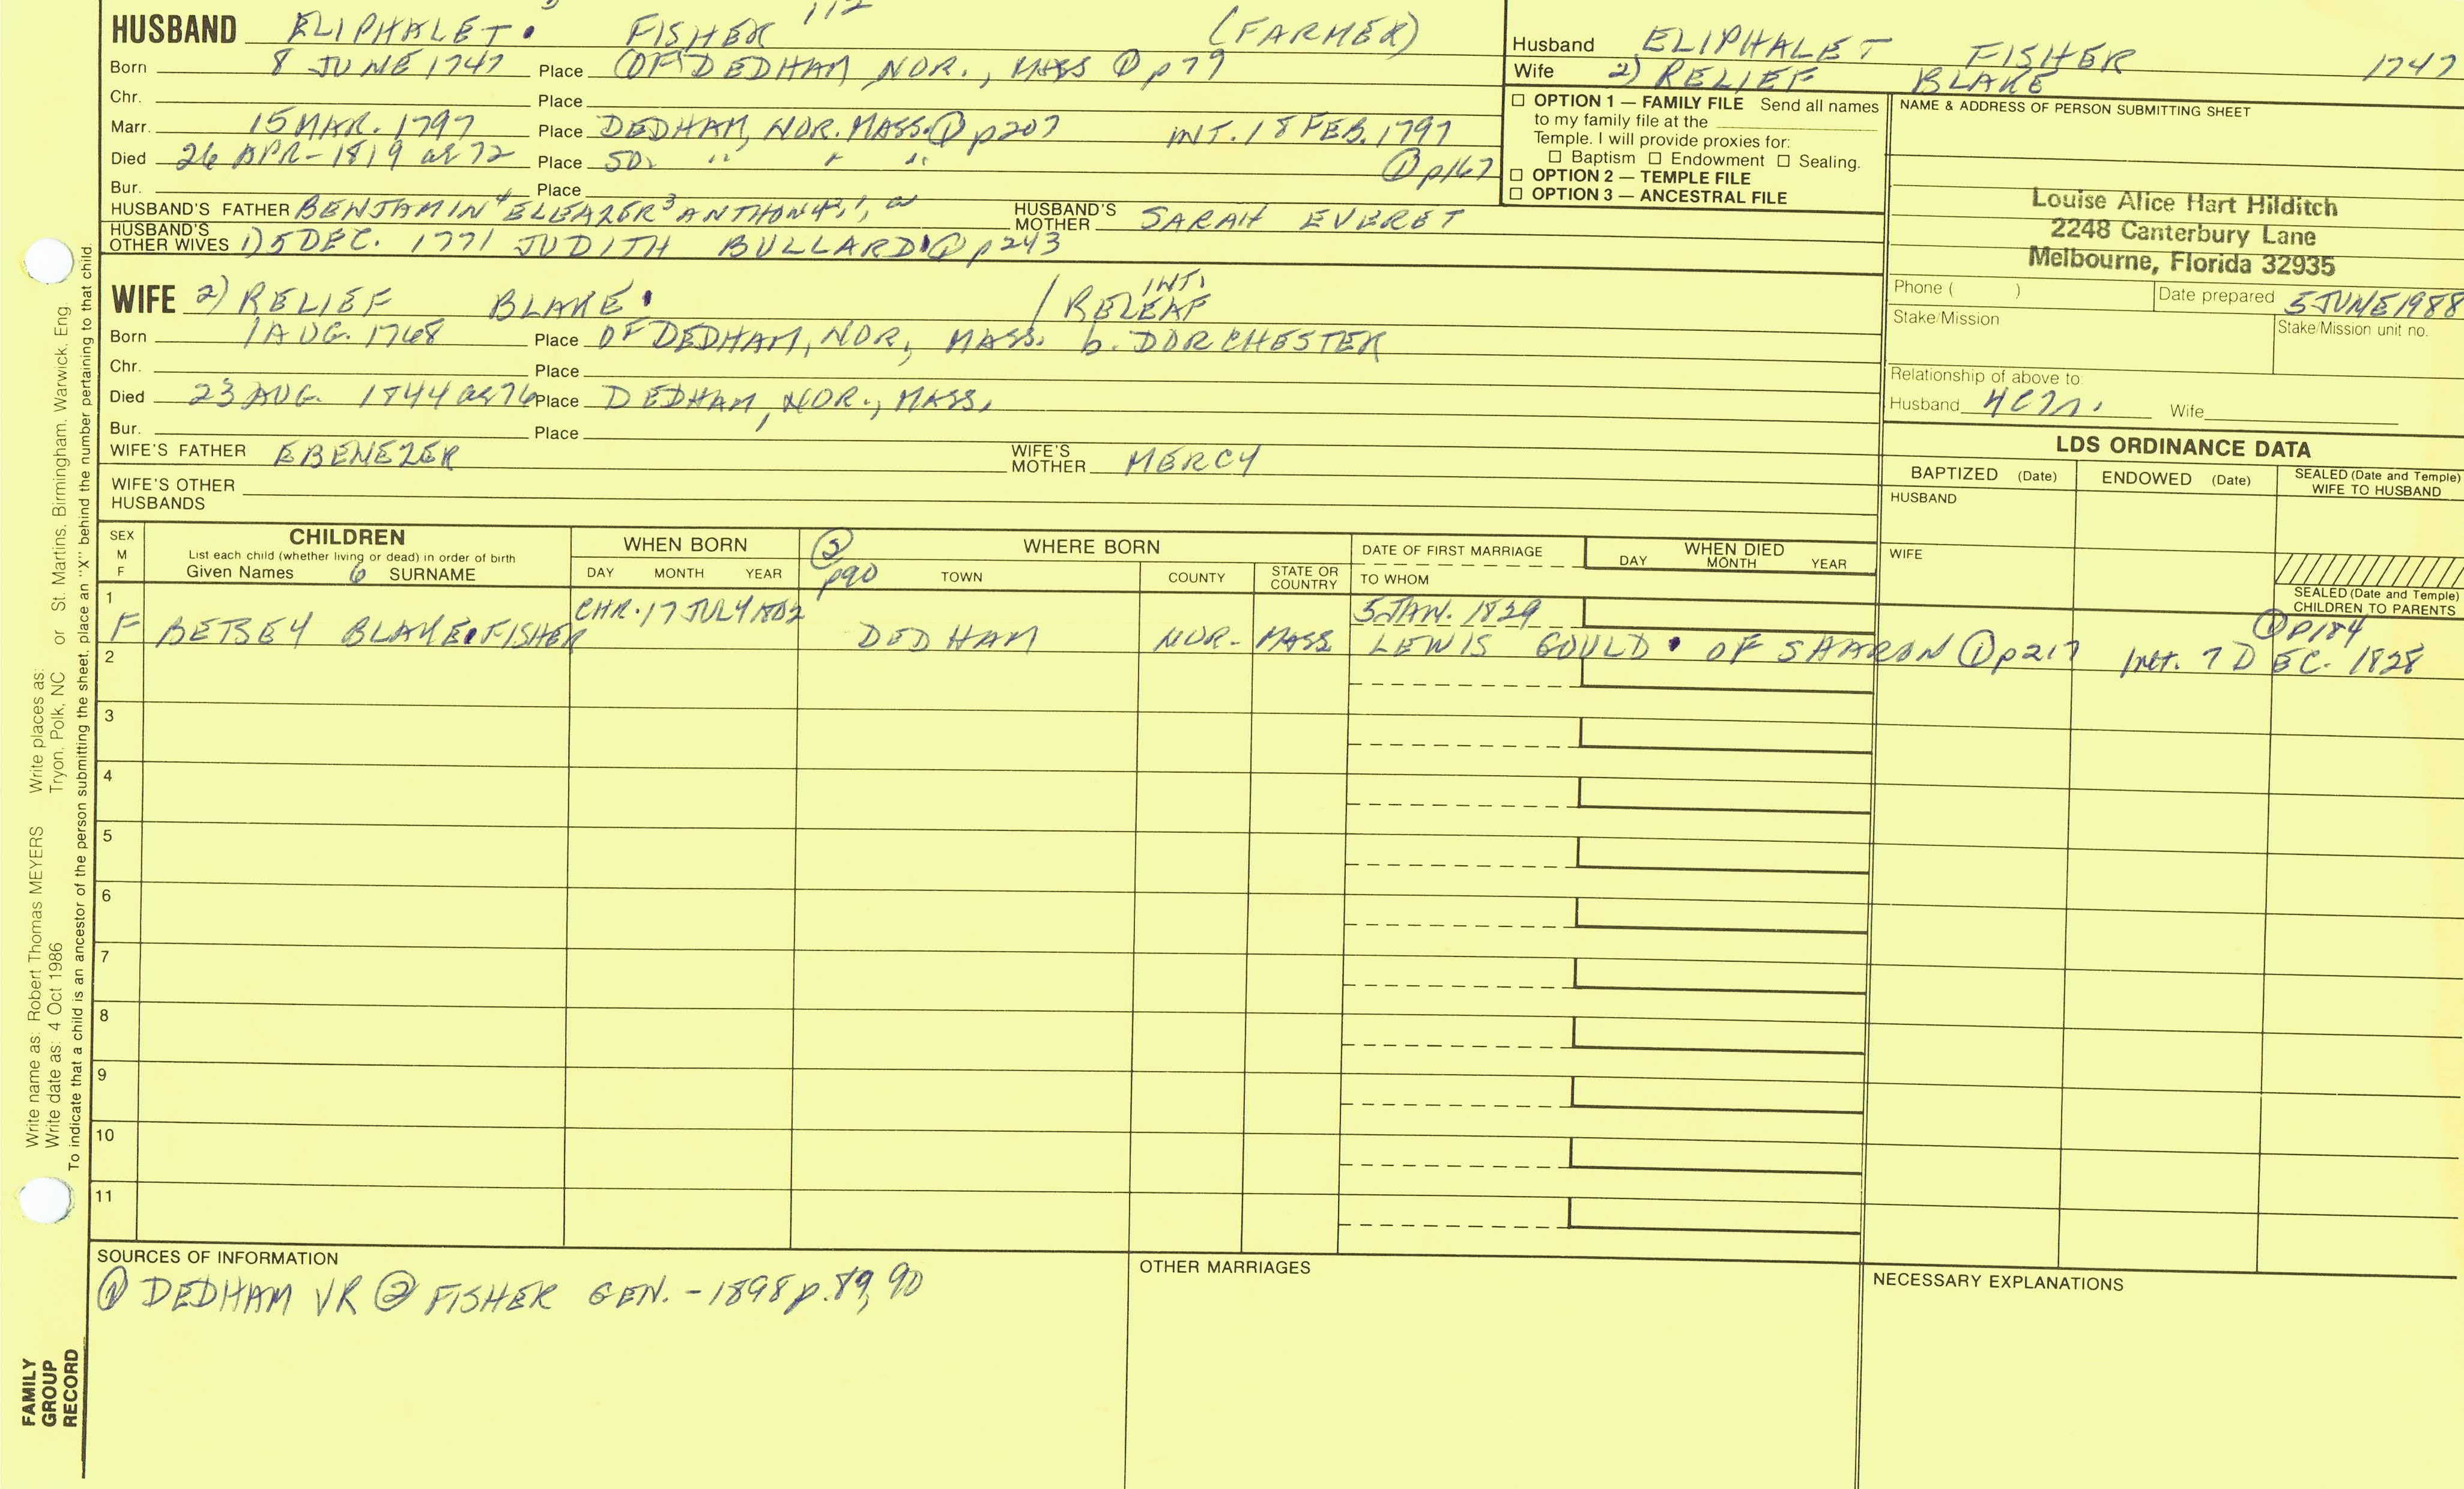 HUSBAND ELIPHALET. FISHER 112 (FARMER)
Born 8 JUNE 1747 Place (OF) DEDHAM, NOR., MASS ① p79
Chr. Place
Marr. 15 MAR. 1797 Place DEDHAM, NOR. MASS. ① p207 INT. 18 FEB. 1797
Died 26 APR-1819 ae 72 Place SD. " " " ① p167
Bur. Place
HUSBAND'S FATHER BENJAMIN⁴ ELEAZER³ ANTHONY²,¹, HUSBAND'S MOTHER SARAH EVERET
HUSBAND'S OTHER WIVES 1) 5 DEC. 1771 JUDITH BULLARD ① p243
WIFE 2) RELIEF BLAKE. / INT. RELEAF
Born 1 AUG. 1768 Place OF DEDHAM, NOR., MASS. b. DORCHESTER
Chr. Place
Died 23 AUG. 1844 ae 76 Place DEDHAM, NOR., MASS.
Bur. Place
WIFE'S FATHER EBENEZER WIFE'S MOTHER MERCY
WIFE'S OTHER HUSBANDS
Husband ELIPHALET FISHER 1747
Wife 2) RELIEF BLAKE
☐ OPTION 1 — FAMILY FILE Send all names
to my family file at the
Temple. I will provide proxies for:
☐ Baptism ☐ Endowment ☐ Sealing.
☐ OPTION 2 — TEMPLE FILE
☐ OPTION 3 — ANCESTRAL FILE
NAME & ADDRESS OF PERSON SUBMITTING SHEET
Louise Alice Hart Hilditch
2248 Canterbury Lane
Melbourne, Florida 32935
Phone ( ) Date prepared 5 JUNE 1988
Stake/Mission Stake/Mission unit no.
Relationship of above to:
Husband 4C7r. Wife
LDS ORDINANCE DATA
BAPTIZED (Date) ENDOWED (Date) SEALED (Date and Temple) WIFE TO HUSBAND
HUSBAND
WIFE
SEALED (Date and Temple) CHILDREN TO PARENTS
SEX M F
CHILDREN
List each child (whether living or dead) in order of birth
Given Names 6 SURNAME
WHEN BORN
DAY MONTH YEAR
② p90
WHERE BORN
TOWN COUNTY STATE OR COUNTRY
DATE OF FIRST MARRIAGE
TO WHOM
WHEN DIED
DAY MONTH YEAR
1 CHR. 17 JULY 1802 5 JAN. 1829 ① p184
F BETSEY BLAKE. FISHER DEDHAM NOR- MASS LEWIS GOULD. OF SHARON ① p217 Int. 7 DEC. 1828
2
3
4
5
6
7
8
9
10
11
SOURCES OF INFORMATION
① DEDHAM VR ② FISHER GEN. - 1898 p. 89, 90
OTHER MARRIAGES
NECESSARY EXPLANATIONS
Write name as: Robert Thomas MEYERS Write places as: St. Martins, Birmingham, Warwick, Eng.
Write date as: 4 Oct 1986 Tryon, Polk, NC or
To indicate that a child is an ancestor of the person submitting the sheet, place an "X" behind the number pertaining to that child.
FAMILY
GROUP
RECORD